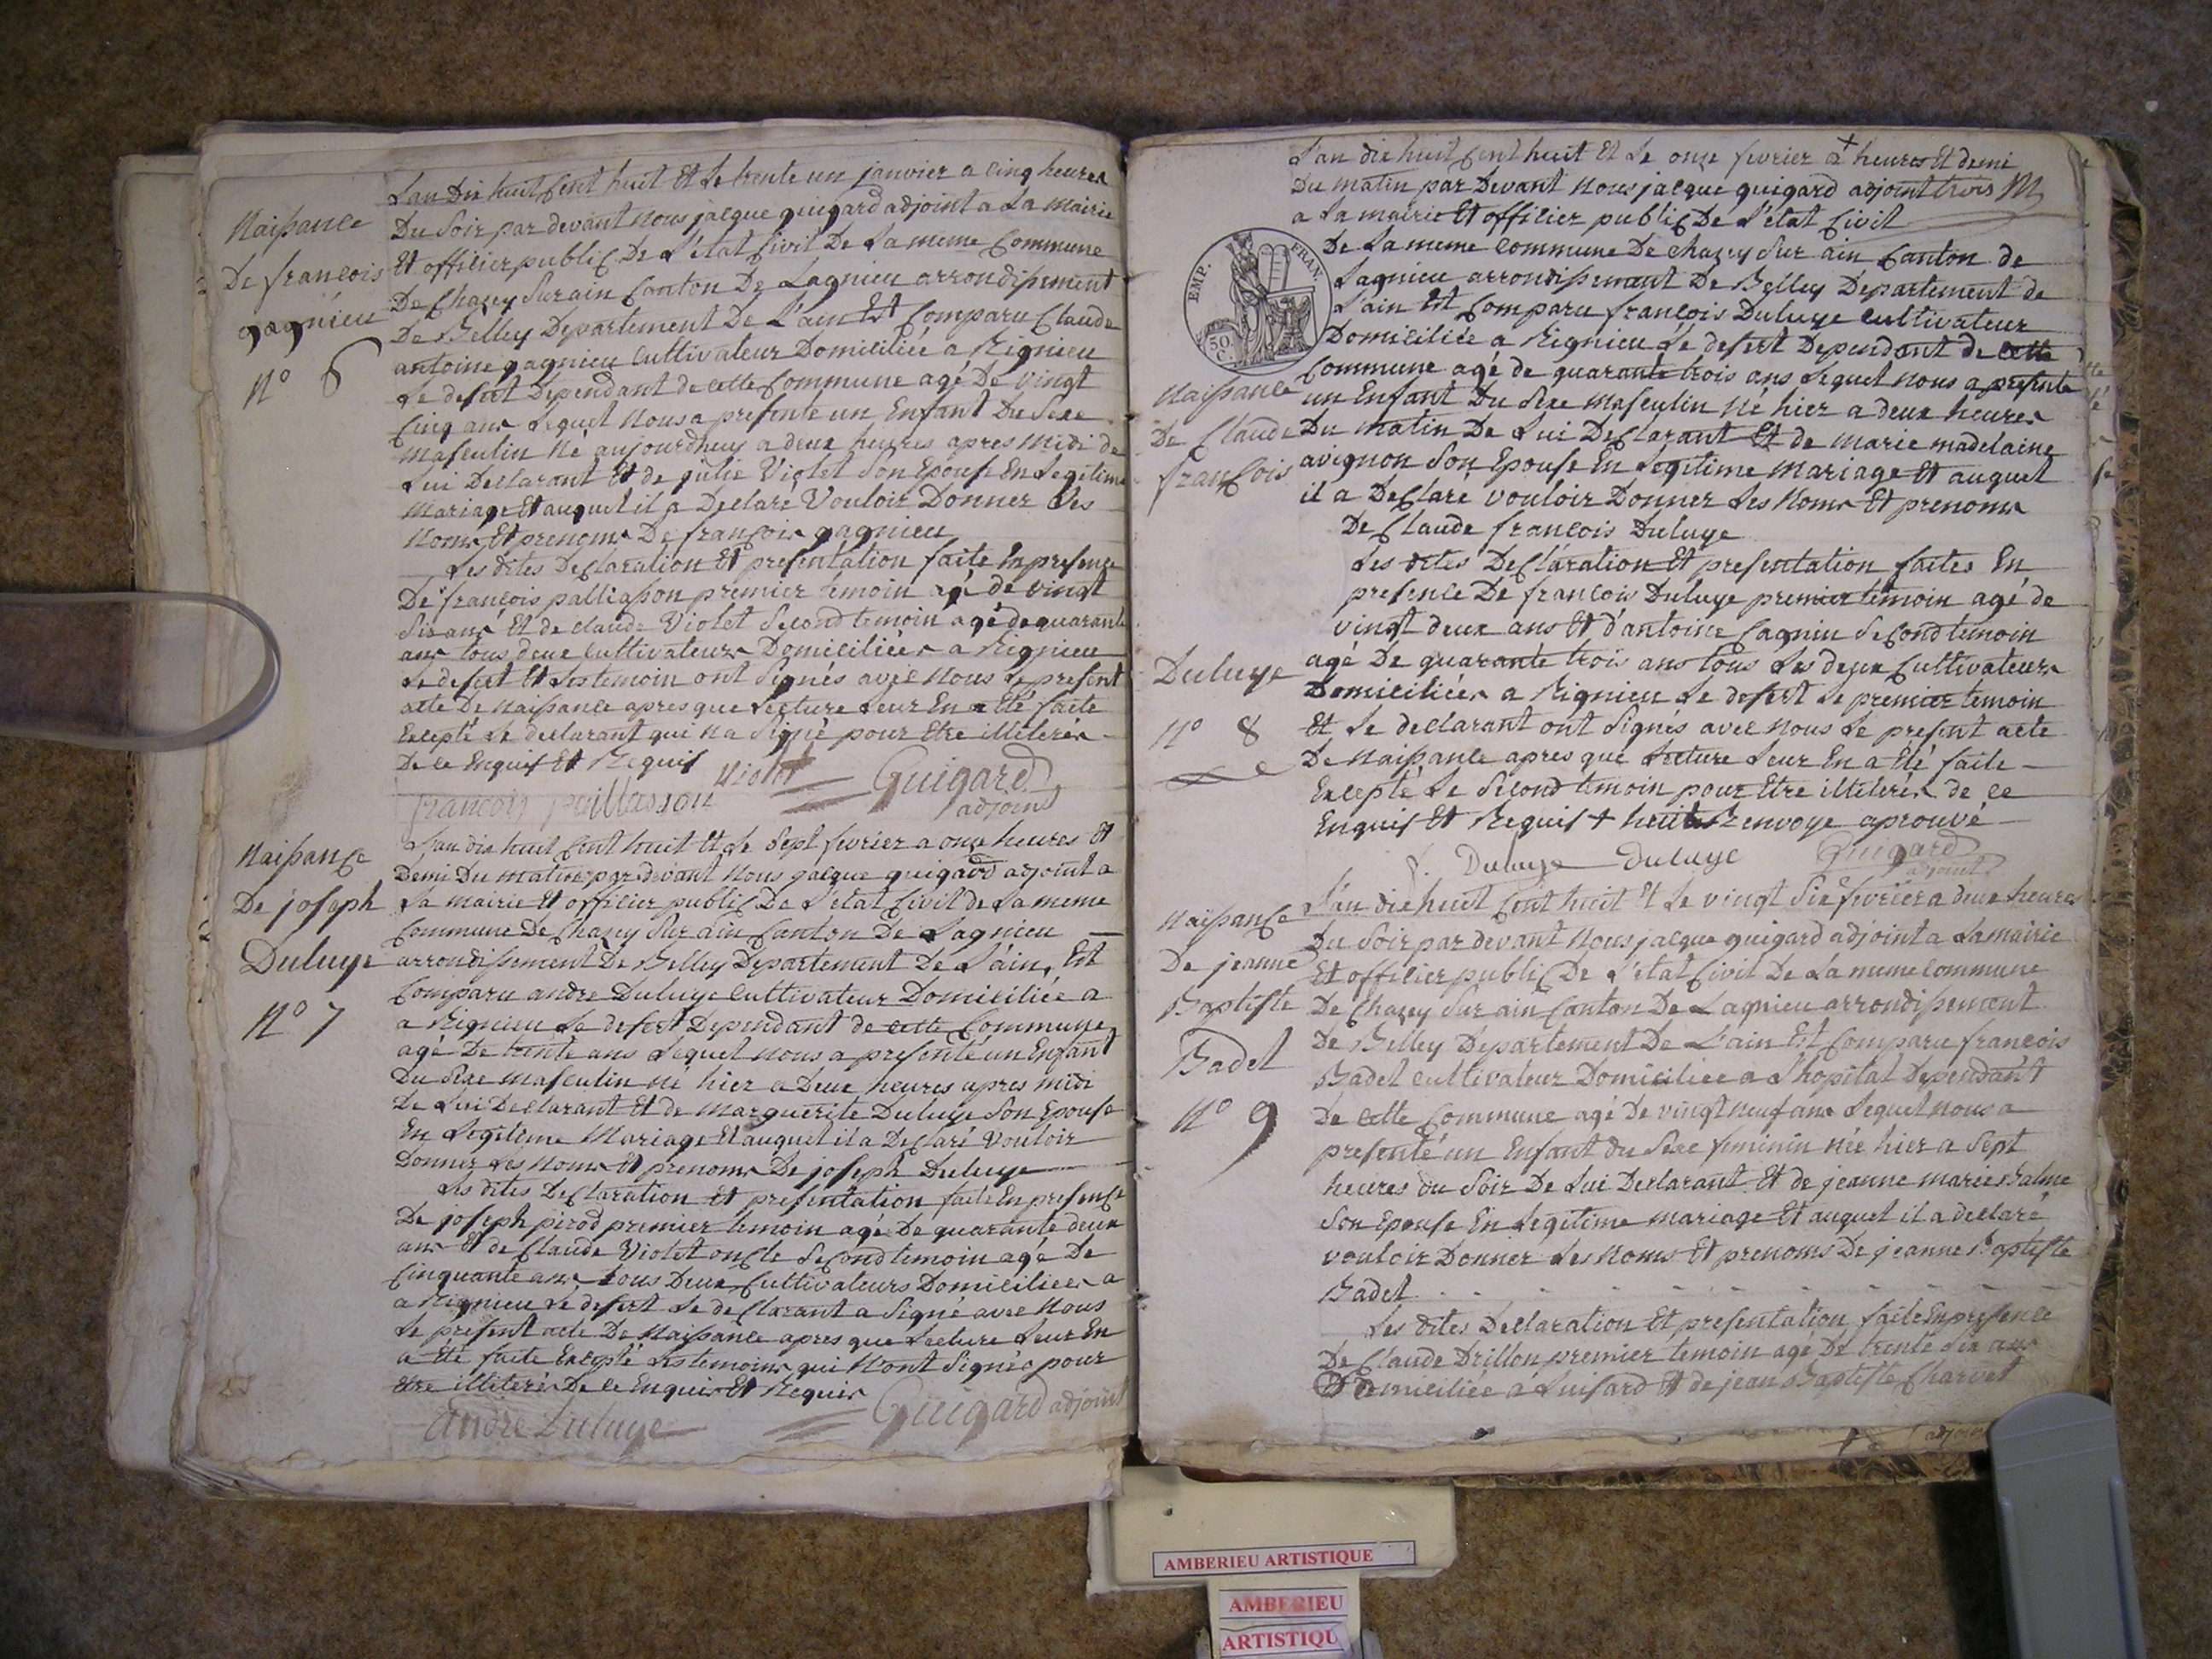 Naissance
De francois
gagnieu
N° 6
L'an Dix huit Cent huit Et Le trente un janvier a Cinq heures
Du Soir par devant Nous jacque guigard adjoint a La Mairie
Et officier public De L'état Civil De La meme Commune
De Chazey Sur ain Canton De Lagnieu arrondissement
De Belley Departement De L'ain Est Comparu Claude
antoine gagnieu Cultivateur Domiciliée a Rignieu
Le desert Dependant de cette Commune agé De vingt
Cinq ans Lequel Nous a presenté un Enfant Du Sexe
Masculin Né aujourdhuy a deux heures apres Midi de
Lui Declarant Et de julie Violet Son Epouse En Legitime
Mariage Et auquel il a Declare Vouloir Donner Les
Noms Et prenoms De françois gagnieu
Les dites Declaration Et presentation faite En presence
De françois palliasson premier temoin agé de vingt
Six ans Et de claude Violet Second temoin agé de quarante
ans tous deux Cultivateurs Domiciliées a Rignieu
Le desert Et Les temoin ont Signés avec Nous Le present
acte De Naissance apres que Lecture Leur En a Eté faite
Excepté Le declarant que Na Signé pour Etre illiterés
De ce Enquis Et Requis
Violet
Guigard
francois paillasson
adjoint
Naissance
De joseph
Duluye
N° 7
L'an dix huit Cent huit Et Le Sept fevrier a onze heures Et
Demi Du matin par devant Nous jacque guigard adjoint a
La mairie Et officier public De L'état Civil de La meme
Commune De Chazey Sur ain Canton De Lagnieu
arrondissement De Belley Departement De L'ain, Est
Comparu andre Duluye Cultivateur Domiciliée a
a Rignieu Le desert Dependant de cette Commune
agé De trente ans Lequel Nous a presenté un Enfant
Du Sexe Masculin Né hier a Deux heures apres midi
De Lui Declarant Et de Marguerite Duluye Son Epouse
En Legitime Mariage Et auquel il a Declaré Vouloir
Donner Les Noms Et prenoms De joseph Duluye
Les dites Declaration Et presentation faite En presence
De joseph pirod premier temoin agé De quarante deux
ans Et de Claude Violet oncle Second temoin agé De
Cinquante ans tous Deux Cultivateurs Domiciliées a
a Rignieu Le desert Le declarant a Signé avec Nous
Le present acte De Naissance apres que Lecture Leur En
a Eté faite Excepté Les temoins qui Nont Signés pour
Etre illiterés De ce Enquis Et Requis
andre Duluye
Guigard adjoint
L'an dix huit Cent huit Et Le onze fevrier à + heures Et demi
Du matin par Devant Nous jacque guigard adjoint
a La mairie Et officier public De L'état Civil
De La meme Commune De Chazey Sur ain Canton de
Lagnieu arrondissement De Belley Departement de
L'ain Est Comparu françois Duluye Cultivateur
Domiciliée a Rignieu Le desert Dependant de cette
Commune agé de quarante trois ans Lequel Nous a presenté
un Enfant Du Sexe Masculin Né hier a deux heures
Du matin De Lui Declarant Et de Marie madelaine
avignon Son Epouse En Legitime Mariage Et auquel
il a Declaré vouloir Donner Les Noms Et prenoms
De Claude francois Duluye
Les dites Declaration Et presentation faites En
presence De francois Duluye premier temoin agé de
vingt deux ans Et d'antoine Cagnin Second temoin
agé De quarante trois ans tous Les deux Cultivateurs
Domiciliées a Rignieu Le desert Le premier temoin
Et Le declarant ont Signés avec Nous Le present acte
De Naissance apres que Lecture Leur En a Eté faite
Excepté Le Second temoin pour Etre illiterés de ce
Enquis Et Requis + huit Renvoye aprouvé
f. Duluye Duluye Guigard
adjoint
EMP. FRAN.
50
C.
Naissance
De Claude
françois
Duluye
N° 8
Naissance
De jeanne
Baptiste
Badet
N° 9
L'an dix huit Cent huit Et Le vingt Six fevrier a deux heures
Du Soir par devant Nous jacque guigard adjoint a La mairie
Et officier public De L'état Civil De La meme Commune
De Chazey Sur ain Canton De Lagnieu arrondissement
De Belley Departement De L'ain Est Comparu francois
Badet Cultivateur Domiciliée a L'hopital Dependant
De cette Commune agé De vingt neuf ans Lequel nous a
presenté un Enfant du Sexe feminin Née hier a Sept
heures du Soir De Lui Declarant Et de jeanne marie Balme
Son Epouse En Legitime mariage Et auquel il a declaré
vouloir Donner Les Noms Et prenoms De jeanne Baptiste
Badet
Les dites Declaration Et presentation faite En presence
De Claude Drillon premier temoin agé De trente Six ans
Domiciliée a Luisard Et de jean Baptiste Charvet
adjoint
AMBERIEU ARTISTIQUE
AMBERIEU
ARTISTIQU